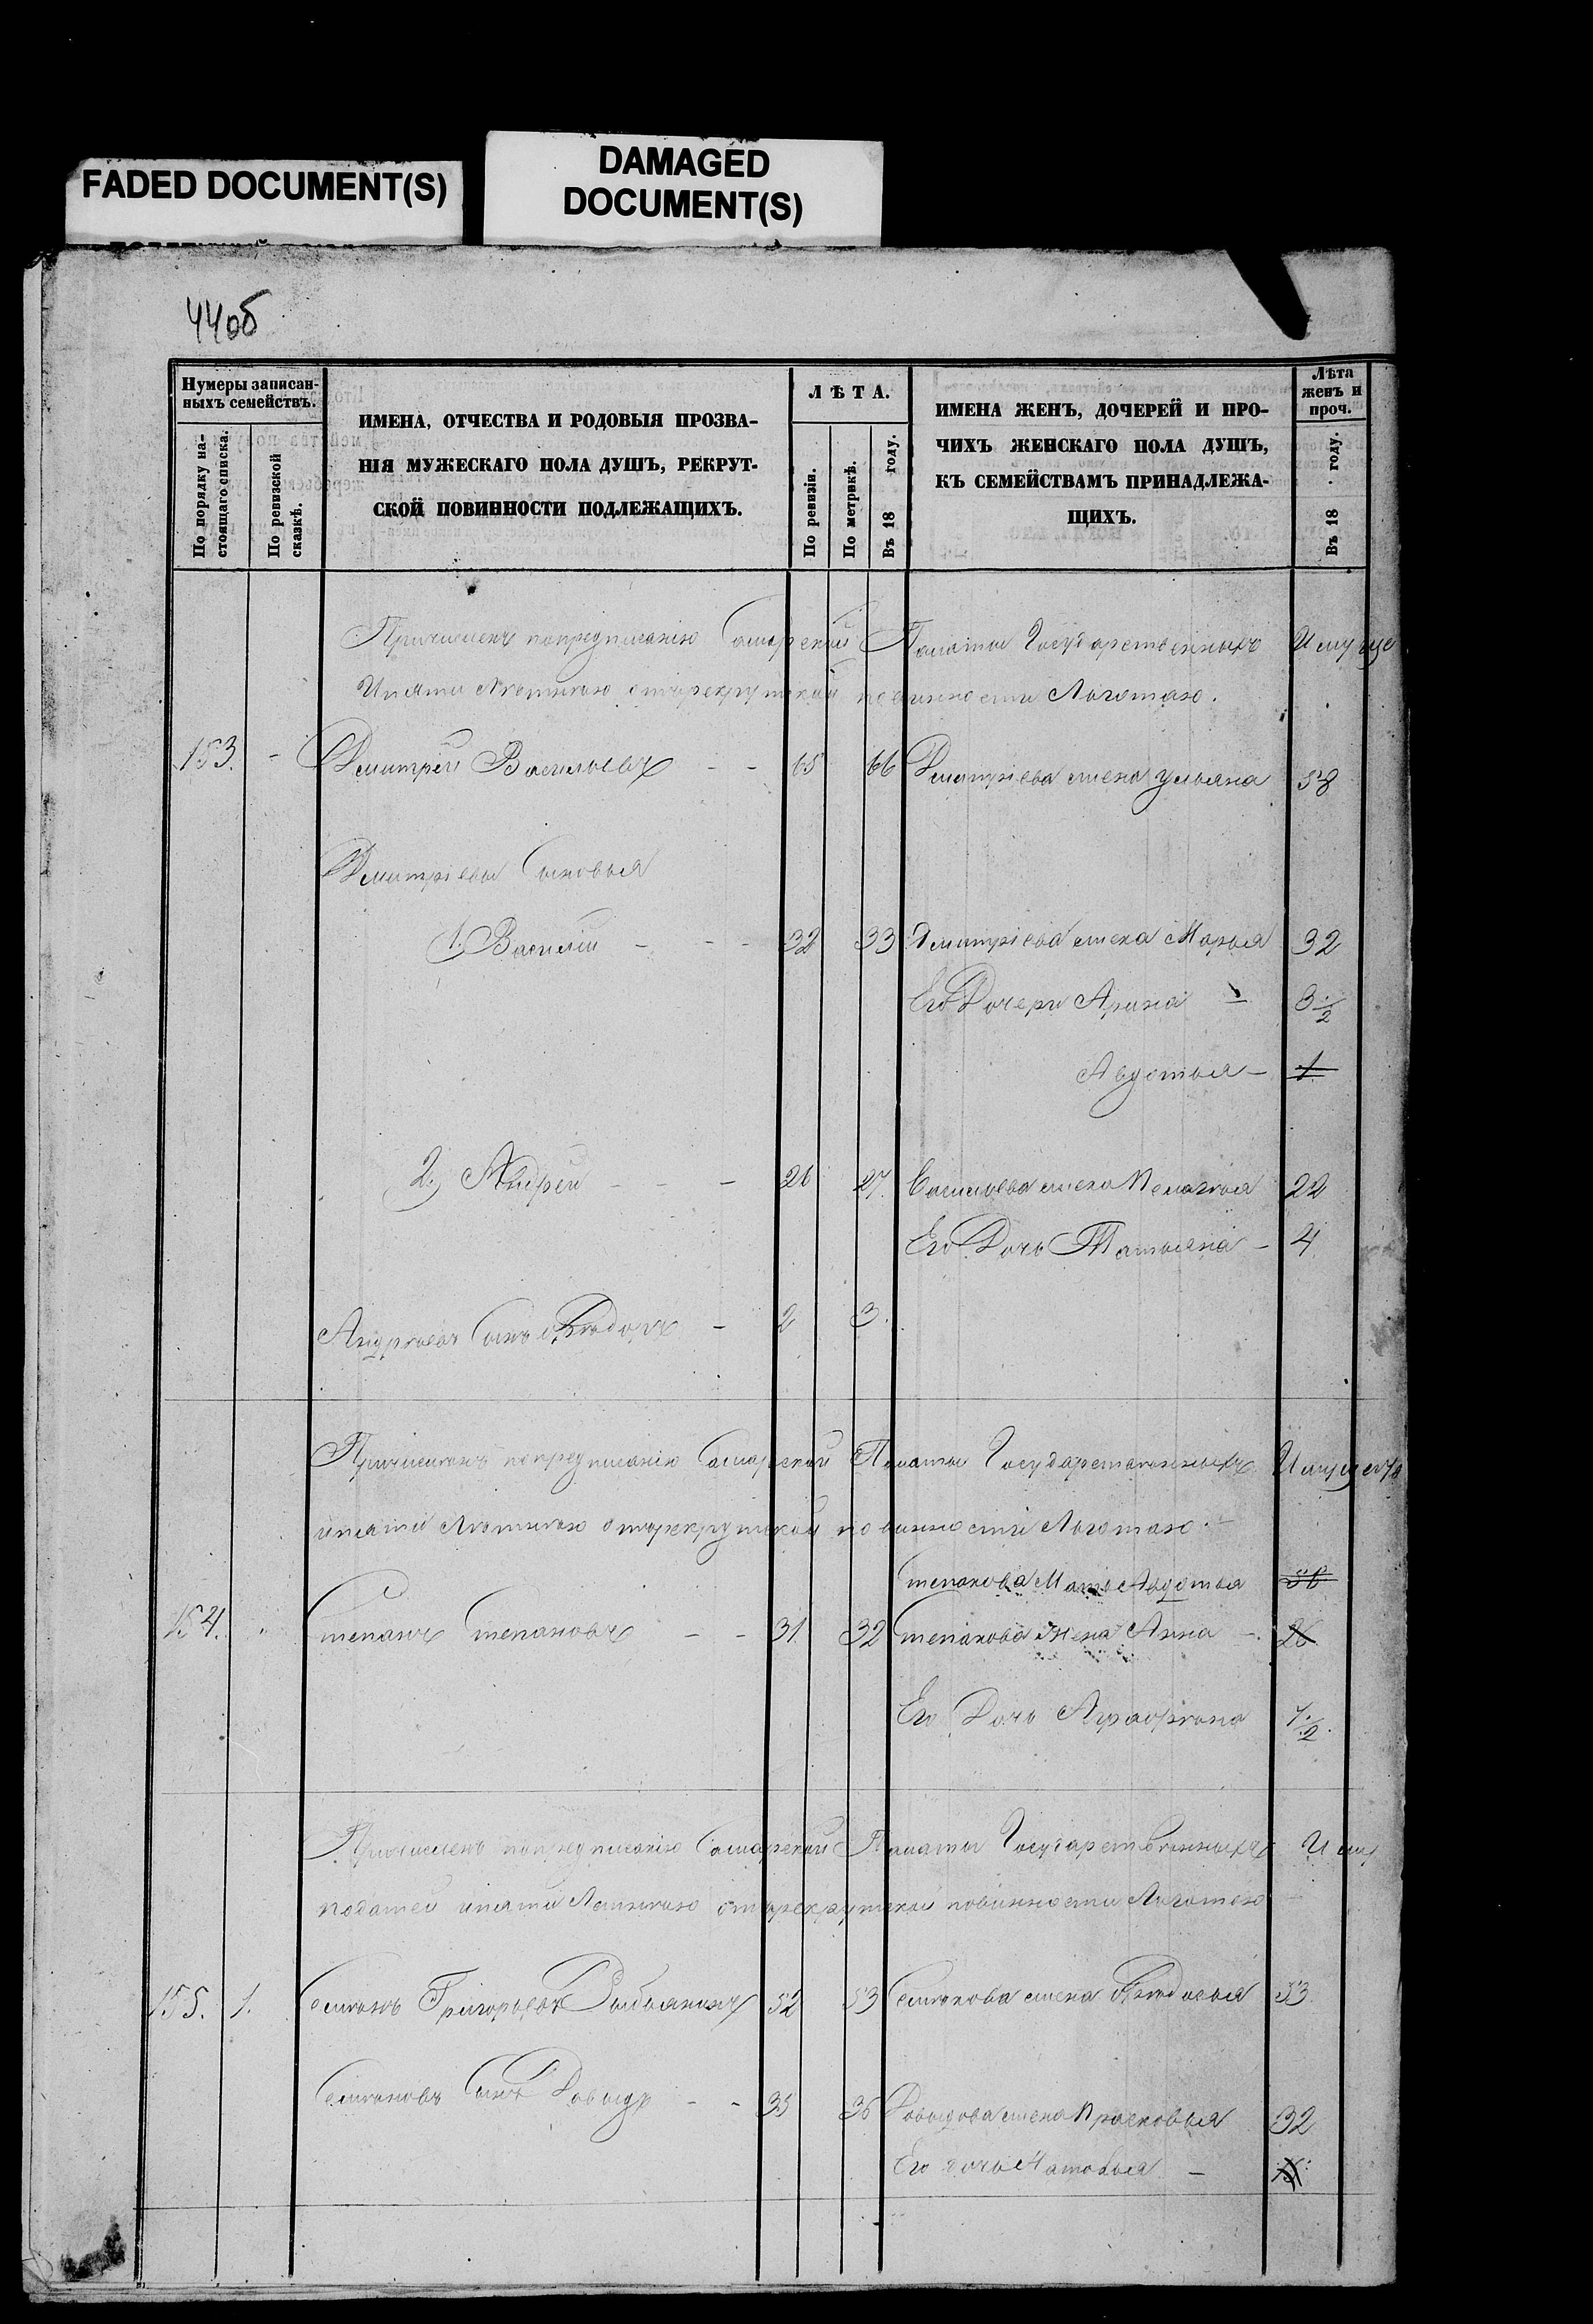 FADED DOCUMENT(S)
DAMAGED
DOCUMENT(S)
44об
Нумеры записан-
ныхъ семействъ.
По порядку на-
стоящаго списка.
По ревизской
сказкѣ.
ИМЕНА, ОТЧЕСТВА И РОДОВЫЯ ПРОЗВА-
НІЯ МУЖЕСКАГО ПОЛА ДУШЪ, РЕКРУТ-
СКОЙ ПОВИННОСТИ ПОДЛЕЖАЩИХЪ.
ЛѢТА.
По ревизіи.
По метрикѣ.
Въ 18 году.
ИМЕНА ЖЕНЪ, ДОЧЕРЕЙ И ПРО-
ЧИХЪ ЖЕНСКАГО ПОЛА ДУШЪ,
КЪ СЕМЕЙСТВАМЪ ПРИНАДЛЕЖА-
ЩИХЪ.
Лѣта
женъ и
проч.
Въ 18 . году.
Причисленъ попредписанію Самарской Палаты Государственныхъ Имуще
Ипяти лѣтнею отърекрутской повинности Льготаю.
153. - Дмитрей Васильевъ - - 65 66 Дмитріева жена Ульяна 58
Дмитріевы Сыновья
1. Василій - - - 32 33 Дмитріева жена Марья 32
Его Дочери Арина 3 1/2
Авдотья - 1
2) Андрей - - - 26 27. Васильева жена Пелагея 22
Его Дочь Татьяна - 4
Андреевъ Сынъ Ѳедоръ - 2 3.
Причисленъ попредписанію Самарской Палаты Государственныхъ Имущество
ипяти лѣтнею отърекрутской повинности Льготаю. -
Степанова Мать Авдотья 56
154. " Степанъ Степановъ - - 31 32 Степанова Жена Анна - 26
Его Дочь Аграфена 1/2.
Причисленъ попредписанію Самарской Палаты Государственныхъ Иму
податей ипяти Летнею отърекрутской повинности Льготею -
155. 1. Семенъ Григорьевъ 52 53 Семенова жена Ѳедосья 53
Семеновъ Сынъ Давыдъ - - 35 36 Давыдова жена Прасковья 32
Его дочь Наталья -